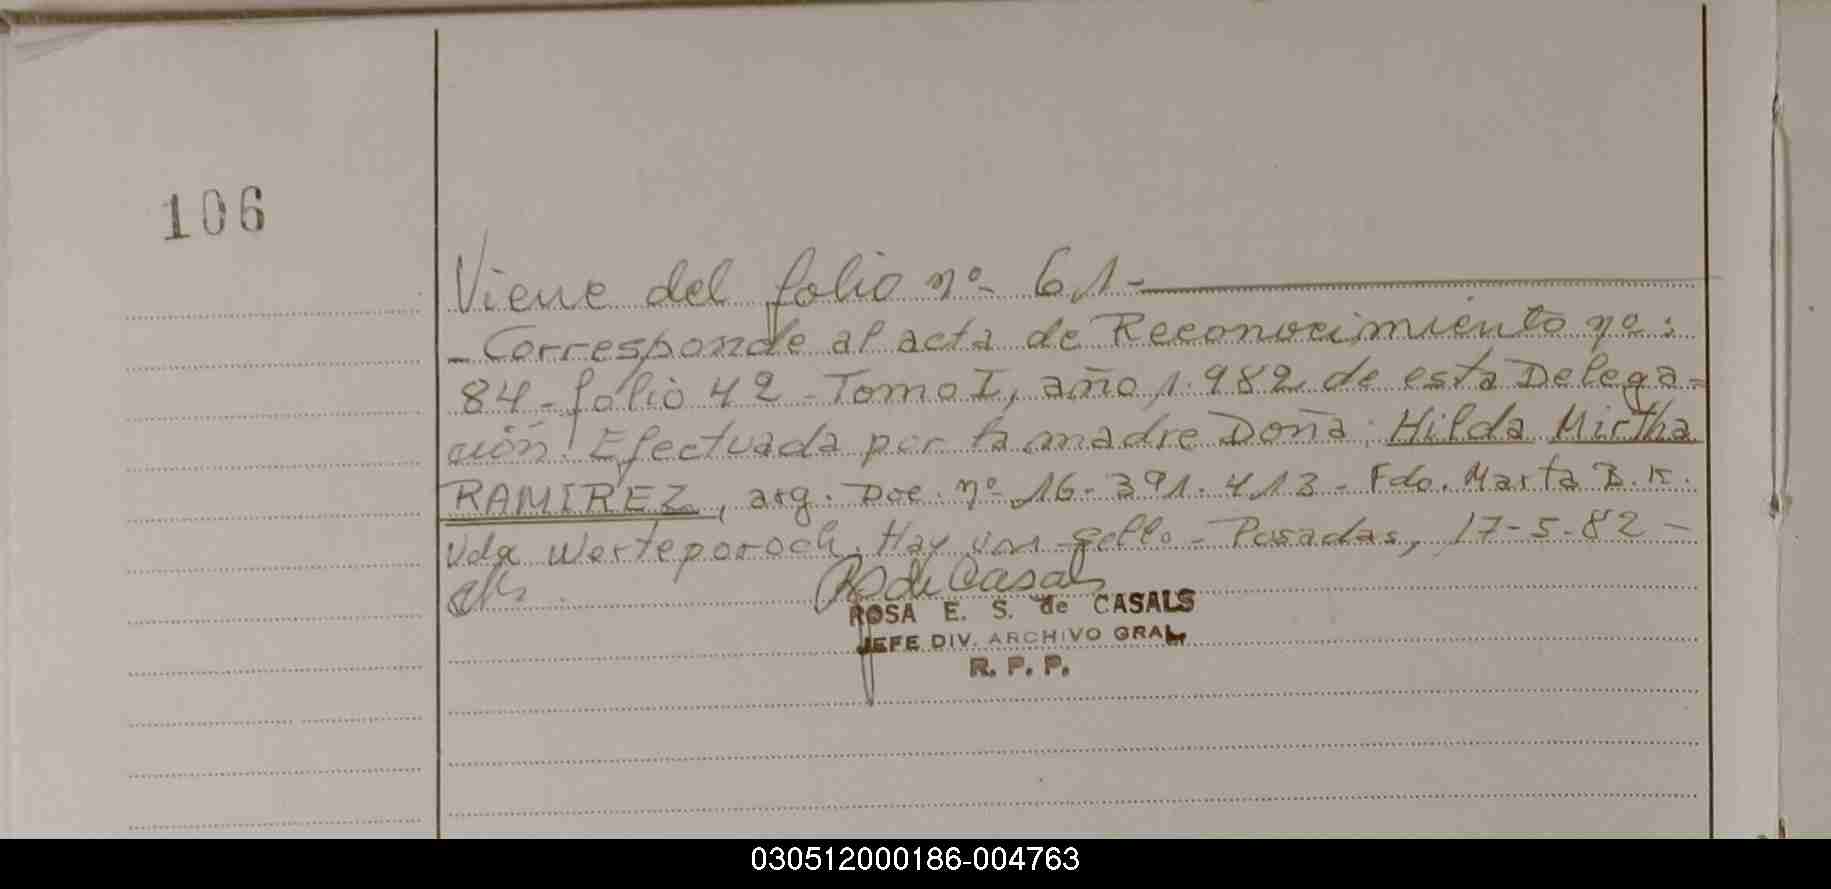 106
Viene del folio nº 61-
- Corresponde al acta de Reconocimiento nº:
84 - folio 42 - Tomo I, año 1.982 de esta Delega-
ción. Efectuada por la madre Doña: Hilda Mirtha
RAMIREZ, arg. Doc. nº 16.391.413 - Fdo. Marta B. K.
Vda Werteporoch. Hay un sello - Posadas, 17-5-82 -
RS de Casals
ROSA E. S. de CASALS
JEFE DIV. ARCHIVO GRAL.
R. P. P.
030512000186-004763